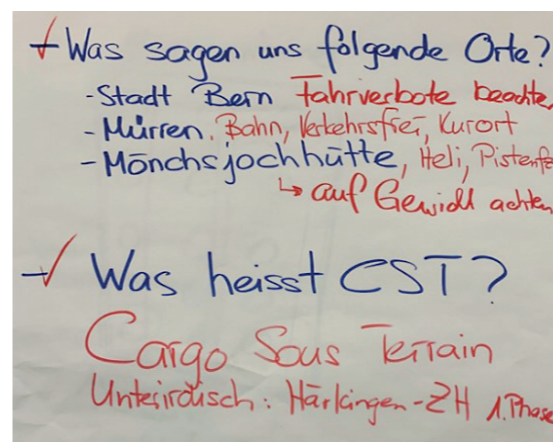 Was sagen uns folgende Orte?
- Stadt Bern Fahrverbote beachte
- Mürren. Bahn, Verkehrsfrei, Kurort
- Mönchsjochhütte, Heli, Pistenfz
↳ auf Gewicht achten
- Was heisst CST?
Cargo Sous Terrain
Unterirdisch: Härkingen - ZH 1. Phase